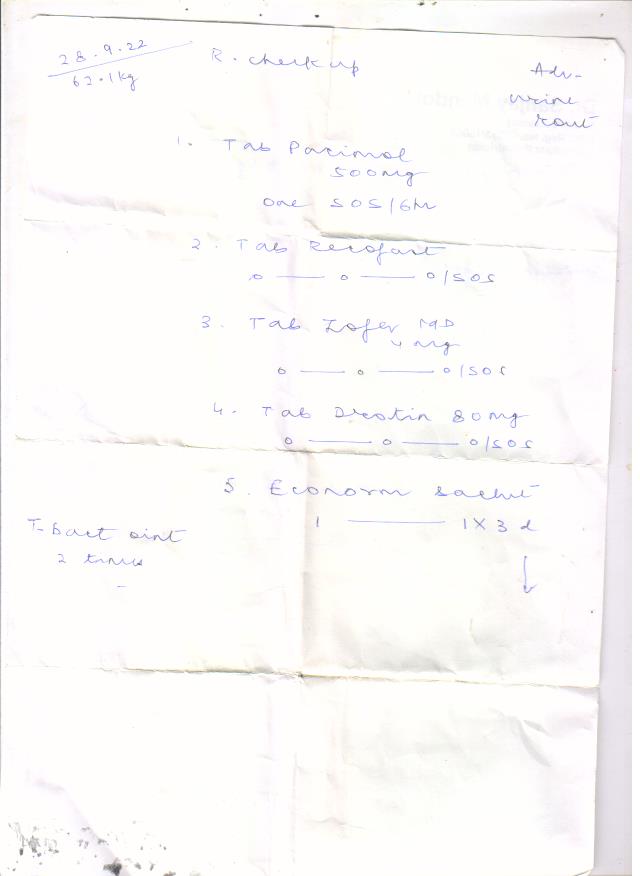 28.9.22
62.1kg
R. checkup
Adv-
urine
rout
1. Tab Pacimol
500mg
One SOS/6hr
2. Tab Recofast
o — o — o/SOS
3. Tab Zofer MD
4 mg
o — o — o/SOS
4. Tab Drotin 80mg
o — o — o/SOS
5. Econorm sachet
1 — 1 X 3 d
T-Bact oint
2 times